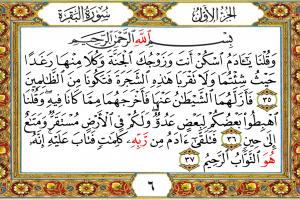 سورة البقرة
الجزء الأول
بسم الله الرحمن الرحيم
وقلنا يـٰـادم اسكن أنت وزوجك الجنة وكلا منها رغدا
حيث شئتما ولا تقربا هذه الشجرة فتكونا من الظالمين
٣٥ فأزلهما الشيطن عنها فأخرجهما مما كانا فيه وقلنا
اهبطوا بعضكم لبعض عدو ولكم في الأرض مستقر ومتع
إلى حين ٣٦ فتلقى ءادم من ربه كلمت فتاب عليه إنه
هو التواب الرحيم ٣٧
٦